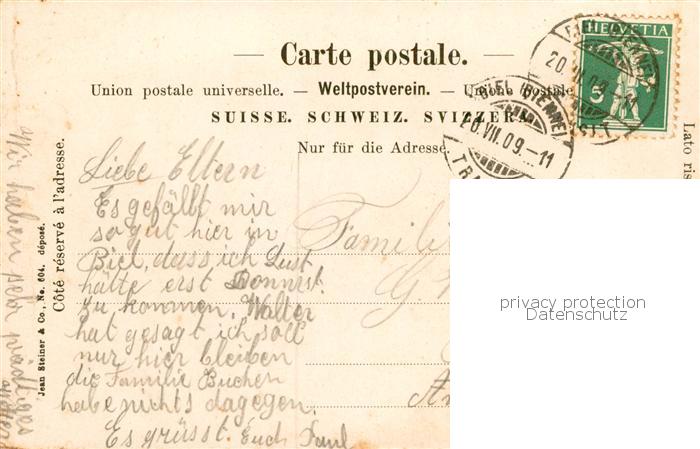 Carte postale.
Union postale universelle. — Weltpostverein. — Union postale
SUISSE. SCHWEIZ. SVIZZERA.
Nur für die Adresse.
HELVETIA
5
BIEL (BIENNE)
20.VII.09.-11
BIEL (BIENNE)
20.VII.09-11
Lato ris
Côté réservé à l'adresse.
Jean Steiner & Co., No. 604. déposé.
Liebe Eltern
Es gefällt mir
so gut hier in
Biel, dass ich Lust
hätte erst Donnrst.
zu kommen. Walter
hat gesagt ich soll
nur hier bleiben
die Familie Bucher
habe nichts dagegen.
Es grüsst Euch Paul
Wir haben sehr
Famili
privacy protection
Datenschutz